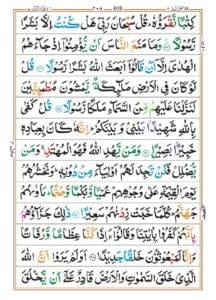 كِتٰبًا نَّقْرَؤُهٗ ؕ قُلْ سُبْحَانَ رَبِّیْ هَلْ كُنْتُ اِلَّا بَشَرًا
رَّسُوْلًا وَمَا مَنَعَ النَّاسَ اَنْ یُّؤْمِنُوْۤا اِذْ جَآءَهُمُ
الْهُدٰۤی اِلَّاۤ اَنْ قَالُوْۤا اَبَعَثَ اللّٰهُ بَشَرًا رَّسُوْلًا قُلْ
لَّوْ كَانَ فِی الْاَرْضِ مَلٰٓئِكَةٌ یَّمْشُوْنَ مُطْمَئِنِّیْنَ
لَنَزَّلْنَا عَلَیْهِمْ مِّنَ السَّمَآءِ مَلَكًا رَّسُوْلًا قُلْ كَفٰی
بِاللّٰهِ شَهِیْدًۢا بَیْنِیْ وَبَیْنَكُمْ ؕ اِنَّهٗ كَانَ بِعِبَادِهٖ
خَبِیْرًۢا بَصِیْرًا وَمَنْ یَّهْدِ اللّٰهُ فَهُوَ الْمُهْتَدِ ۚ وَمَنْ
یُّضْلِلْ فَلَنْ تَجِدَ لَهُمْ اَوْلِیَآءَ مِنْ دُوْنِهٖ ؕ وَنَحْشُرُهُمْ
یَوْمَ الْقِیٰمَةِ عَلٰی وُجُوْهِهِمْ عُمْیًا وَّبُكْمًا وَّصُمًّا ؕ مَاْوٰىهُمْ
جَهَنَّمُ ؕ كُلَّمَا خَبَتْ زِدْنٰهُمْ سَعِیْرًا ذٰلِكَ جَزَآؤُهُمْ
بِاَنَّهُمْ كَفَرُوْا بِاٰیٰتِنَا وَقَالُوْۤا ءَاِذَا كُنَّا عِظَامًا وَّرُفَاتًا
ءَاِنَّا لَمَبْعُوْثُوْنَ خَلْقًا جَدِیْدًا اَوَلَمْ یَرَوْا اَنَّ اللّٰهَ
الَّذِیْ خَلَقَ السَّمٰوٰتِ وَالْاَرْضَ قَادِرٌ عَلٰۤی اَنْ یَّخْلُقَ